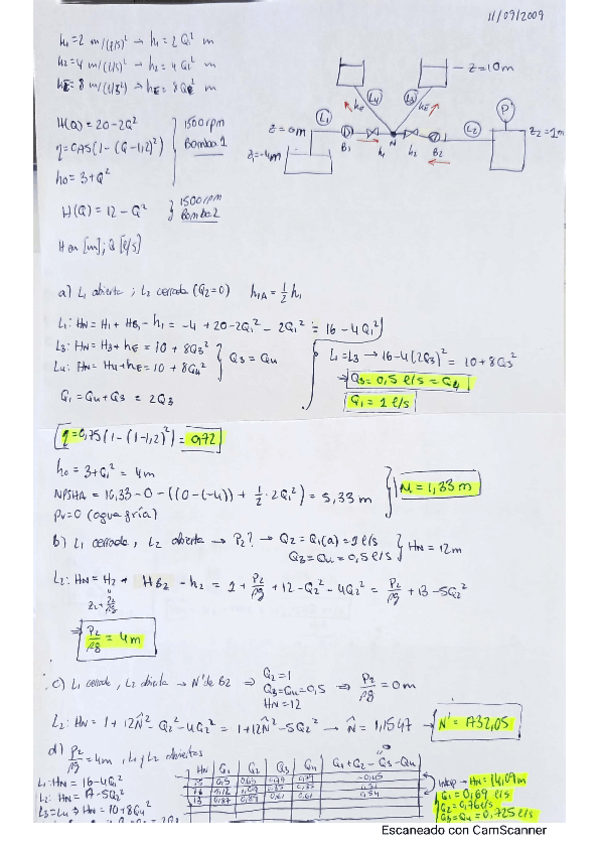 11/09/2009
h₁=2 m/(l/s)² → h₁ = 2Q₁² m
h₂=4 m/(l/s)² → h₂ = 4Q₂² m
hE=8 m/(l/s)² → hE = 8QE² m
H(Q) = 20-2Q²
η=0,75(1-(Q-1,2)²)
h₀ = 3+Q²
1500rpm
Bomba 1
H(Q) = 12 - Q²
1500rpm
Bomba 2
H en [m]; Q [l/s]
z=10m
L₄
L₃
hE
hE
P
L₁
L₂
z=0m
z₁=-4m
z₂=1m
B₁
h₁
N
h₂
B₂
a) L₁ abierta ; L₂ cerrada (Q₂=0) h₁A = ½ h₁
L₁: HN = H₁ + HB₁ - h₁ = -4 + 20-2Q₁² - 2Q₁² = 16 - 4Q₁²
L₃: HN = H₃ + hE = 10 + 8Q₃²
L₄: HN = H₄ + hE = 10 + 8Q₄²
Q₃ = Q₄
L₁=L₃ → 16-4(2Q₃)² = 10+8Q₃²
→ Q₃ = 0,5 l/s = Q₄
Q₁ = Q₄ + Q₃ = 2Q₃
Q₁ = 1 l/s
η=0,75(1-(1-1,2)²) = 0,72
h₀ = 3+Q₁² = 4m
NPSHA = 10,33 - 0 - ((0-(-4)) + ½·2Q₁²) = 5,33 m
M = 1,33 m
Pv=0 (agua fría)
b) L₁ cerrada, L₂ abierta → P₂? → Q₂ = Q₁(a) = 1 l/s
Q₃ = Q₄ = 0,5 l/s
HN = 12m
L₂: HN = H₂ + HB₂ - h₂ = 1 + P₂/ρg + 12 - Q₂² - 4Q₂² = P₂/ρg + 13 - 5Q₂²
z₂+P₂/ρg
⇒ P₂/ρg = 4m
c) L₁ cerrada, L₂ abierta → N' de B2 → Q₂=1
Q₃=Q₄=0,5
HN=12
⇒ P₂/ρg = 0m
L₂: HN = 1 + 12N̂² - Q₂² - 4Q₂² = 1+12N̂² - 5Q₂² → N̂ = 1,1547 → N' = 1732,05
d) P₂/ρg = 4m, L₁ y L₂ abiertos
HN | Q₁ | Q₂ | Q₃ | Q₄ | Q₁+Q₂-Q₃-Q₄
L₁: HN = 16-4Q₁²
L₂: HN = 17-5Q₂²
L₃=L₄ → HN = 10+8Q₄²
13 | 0,87 | 0,89 | 0,61 | 0,61 | 0,54
interp → HN = 14,09m
Q₁ = 0,69 l/s
Q₂ = 0,76 l/s
Q₃ = Q₄ = 0,725 l/s
Escaneado con CamScanner